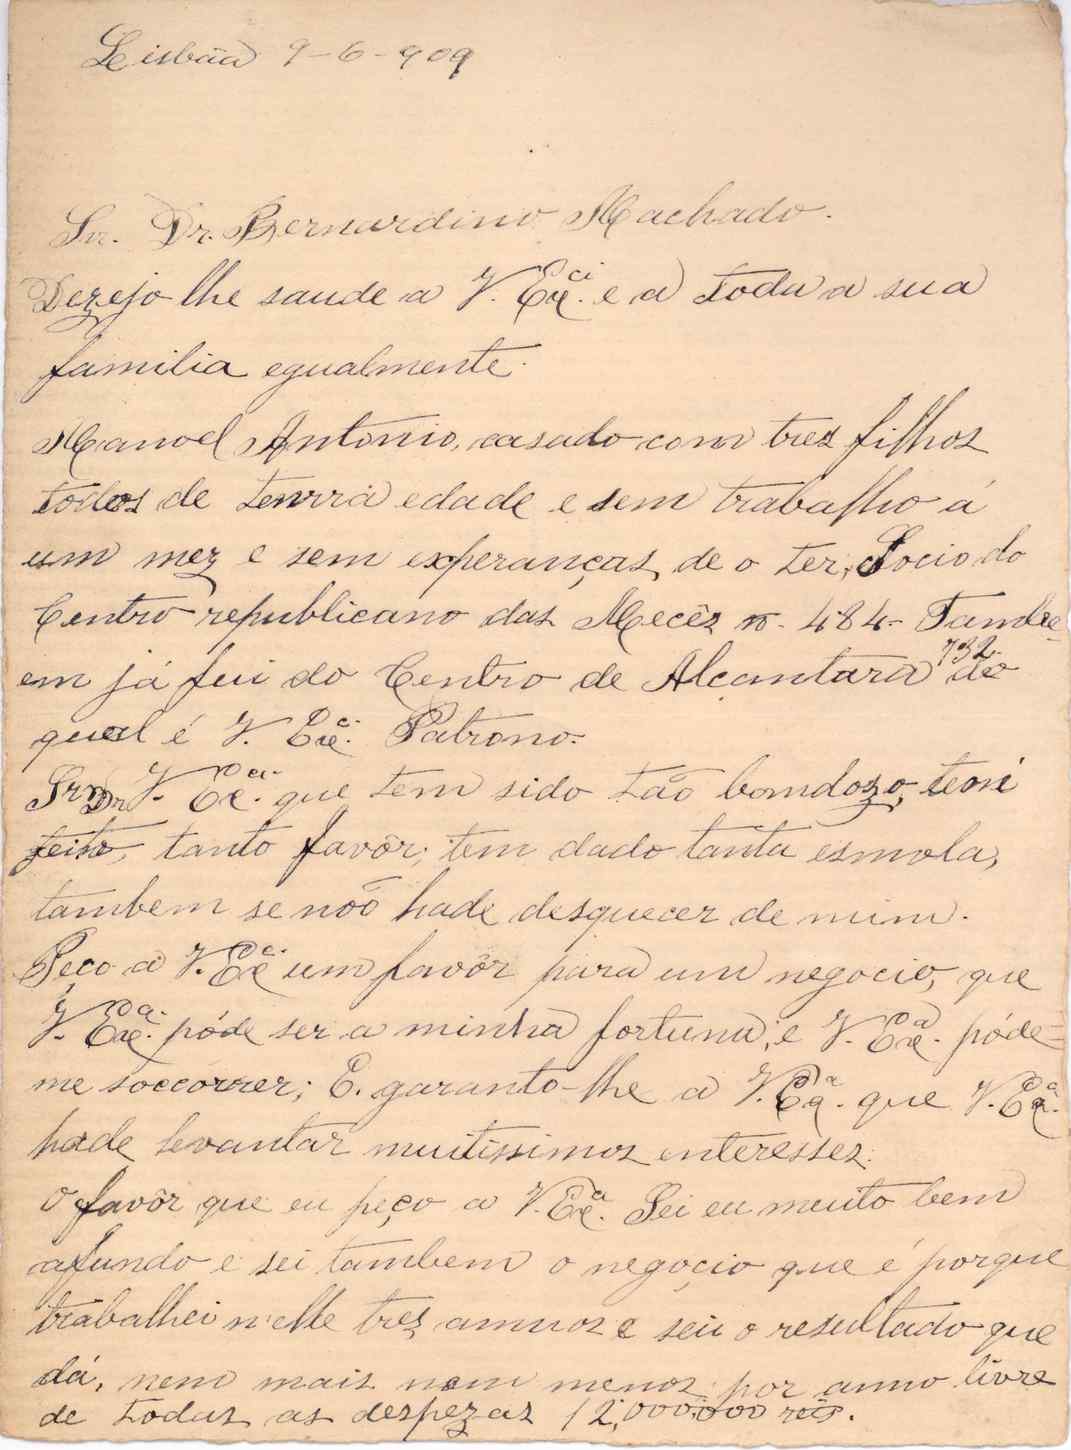 Lisbôa 9-6-909
Snr. Dr. Bernardino Machado.
Dezejo lhe saude a V. Exci. e a toda a sua
familia egualmente.
Manoel Antonio, casado com trez filhos
todos de tenrra edade e sem trabalho á
um mez e sem experanças de o ter, Socio do
Centro republicano das Mecêz nº. 484- Tamb
em já fui do Centro de Alcantara 732- do
qual é V. Exc. Patrono.
Snr. Dr. V. Exca. que tem sido tão bomdozo, tem
feito, tanto favôr; tem dado tanta esmola,
tambem se nóo hade desquecer de mim.
Peço a V. Exc. um favôr para um negocio, que
V. Exa. póde ser a minha fortuna, e V. Exa. póde-
me soccorrer; E. garanto-lhe a V. Exa. que V. Exa.
hade levantar muitissimos enteressez.
O favôr que eu peço a V. Exa. Sei eu muito bem
afundo e sei tambem o negoçio que é porque
trabalhei n'elle trez annos e seiu o resultado que
dá, nem mais nem menos por anno livre
de todas as despezas 12,000.000 reis.